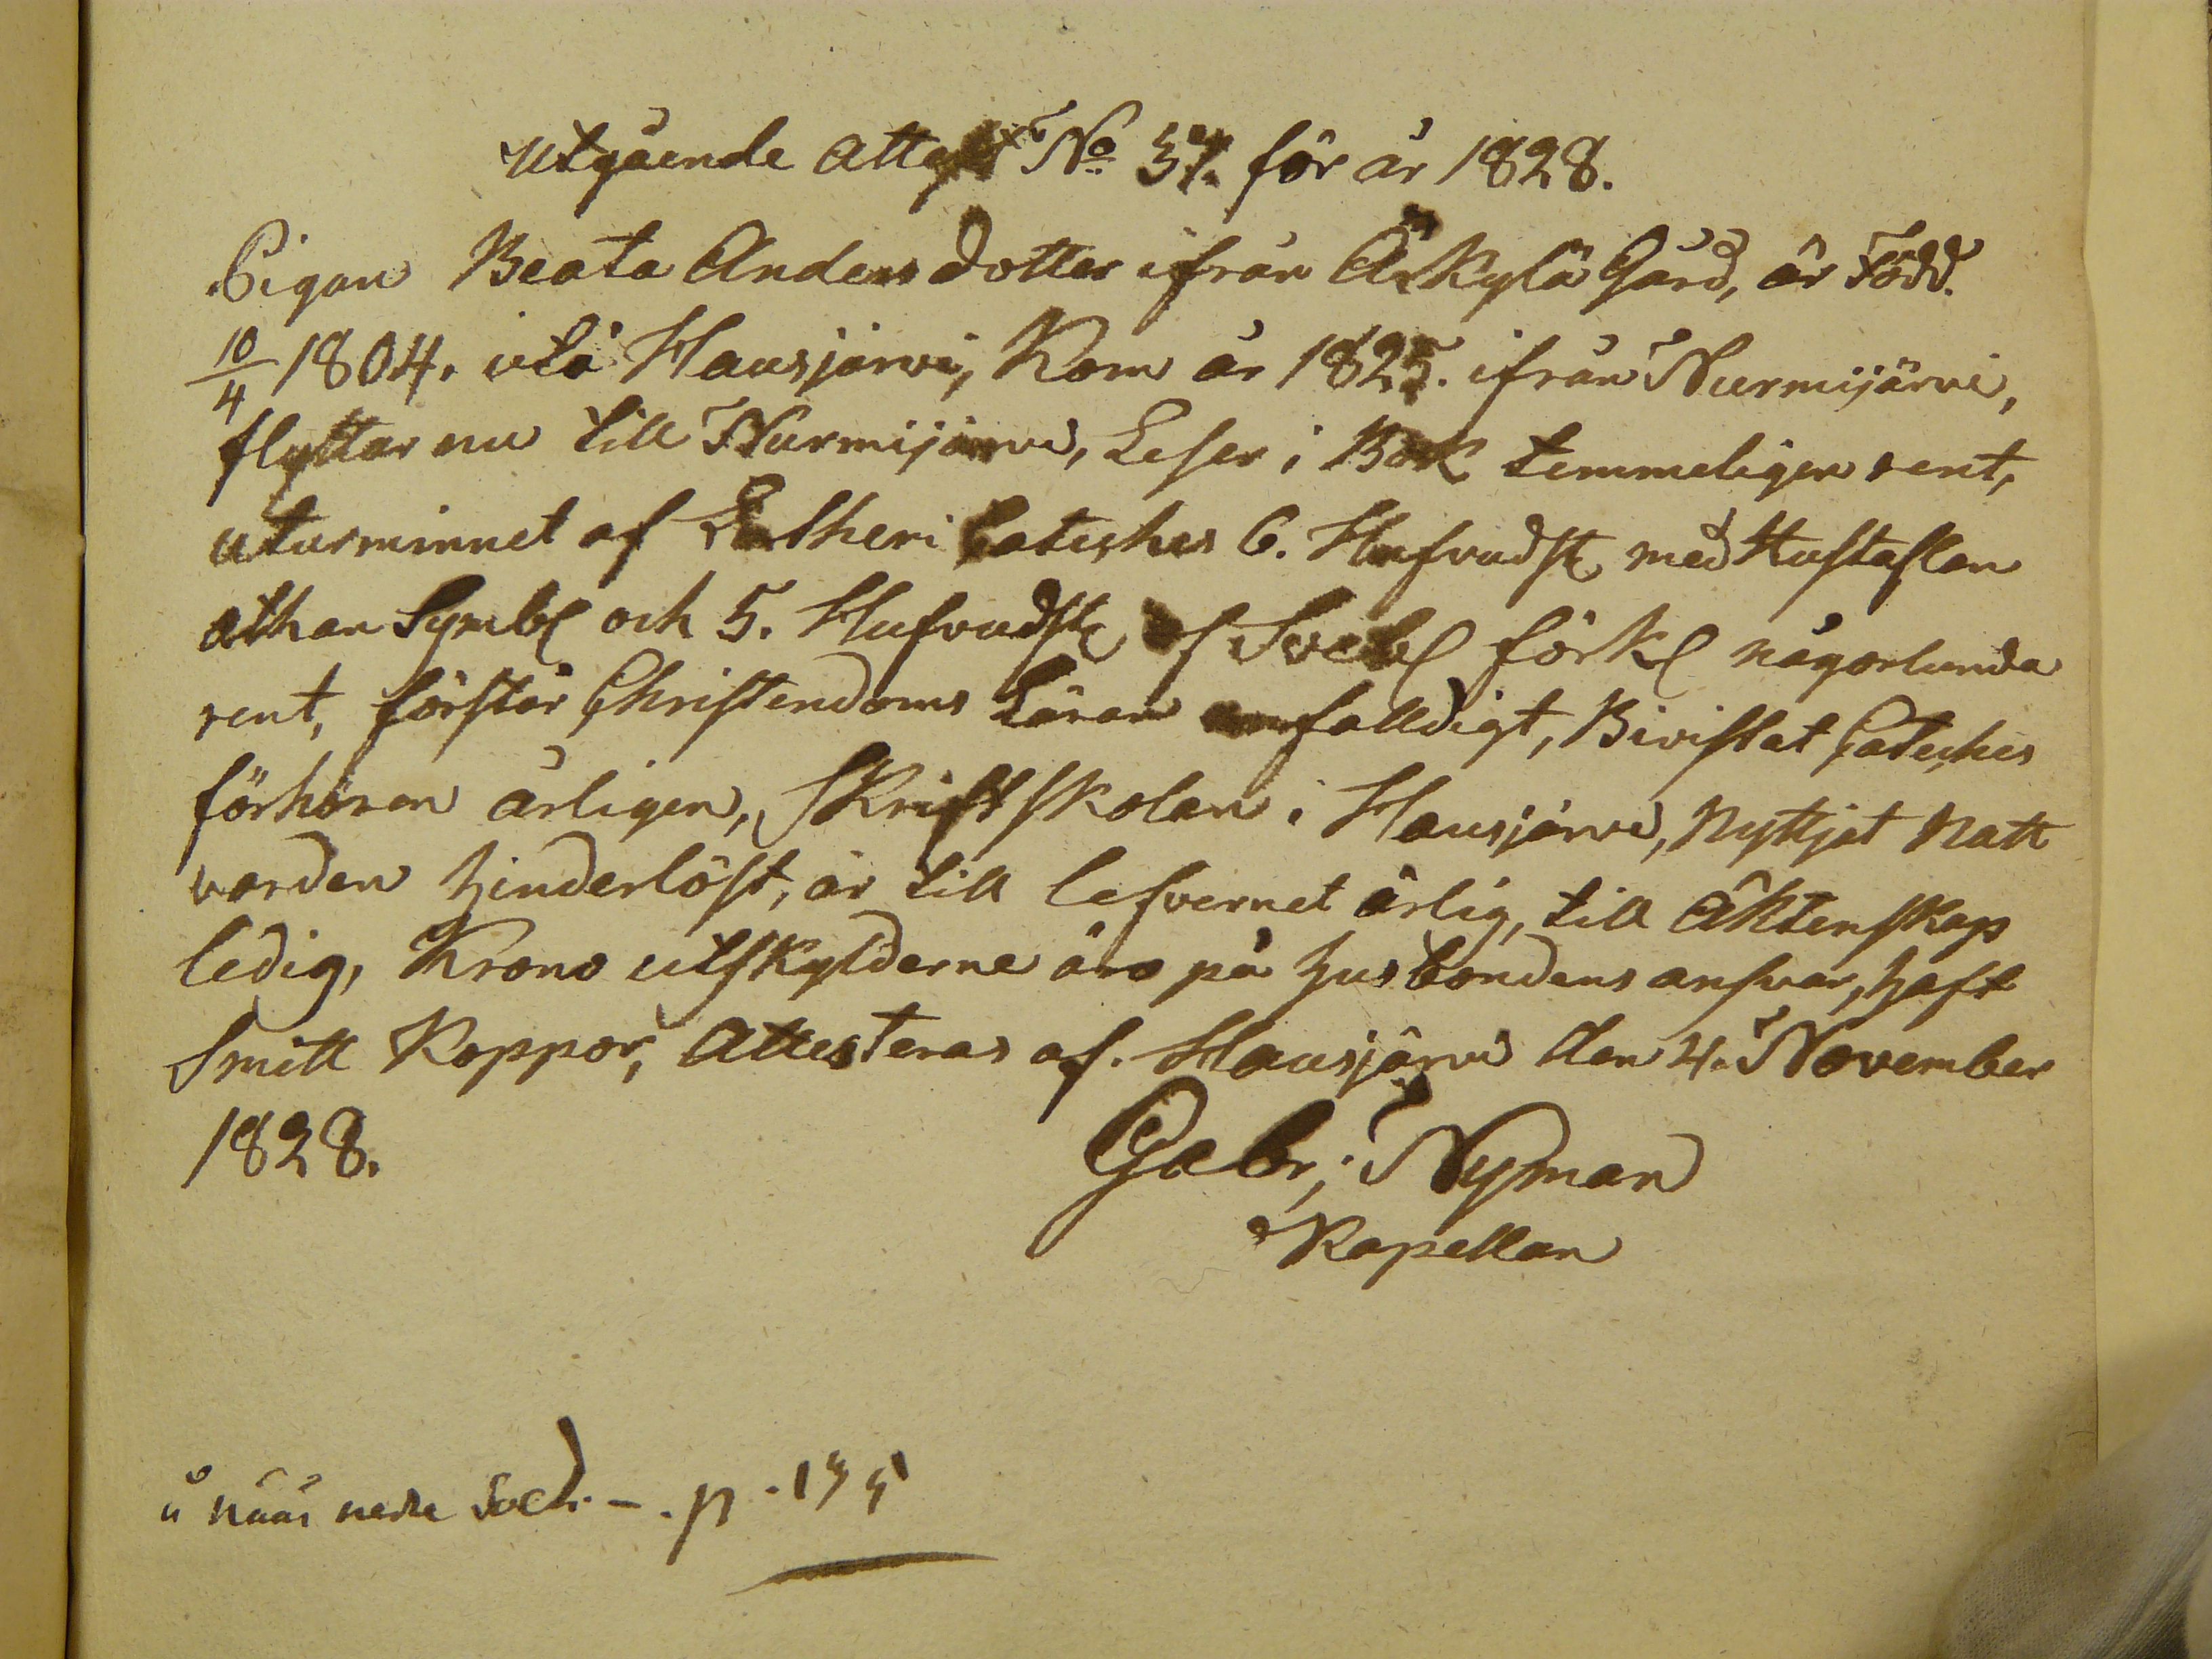 utgående attest No 37. för år 1828.
Pigan Beata Anders dotter ifrån Äikylä Gård, är Född.
10/4 1804. utå Hausjärvi, Kom år 1825. ifrån Nurmijärvi,
flyttar nu till Nurmijärvi, Leser i Bok temmeligen rent,
uturminnet af Lutheri Cateches 6. Hufvudst med Hustaflan
athan Symb och 5. Hufvudst af Sveb förkl någorlunda
rent, förstår Christendoms Läran enfalldigt, Bivistat Cateches
förhören årligen, Skriftskolan i Hausjärvi, Nyttjat Natt
varden hinderlöst, är till lefvernet ärlig, till Äktenskap
ledig, Krono utskylderne äro på husbondens ansvar, haft
Smitt Koppor, Attesteras af. Hausjärvi den 4. November
1828. Gabr; Nyman
Kapellan
p.